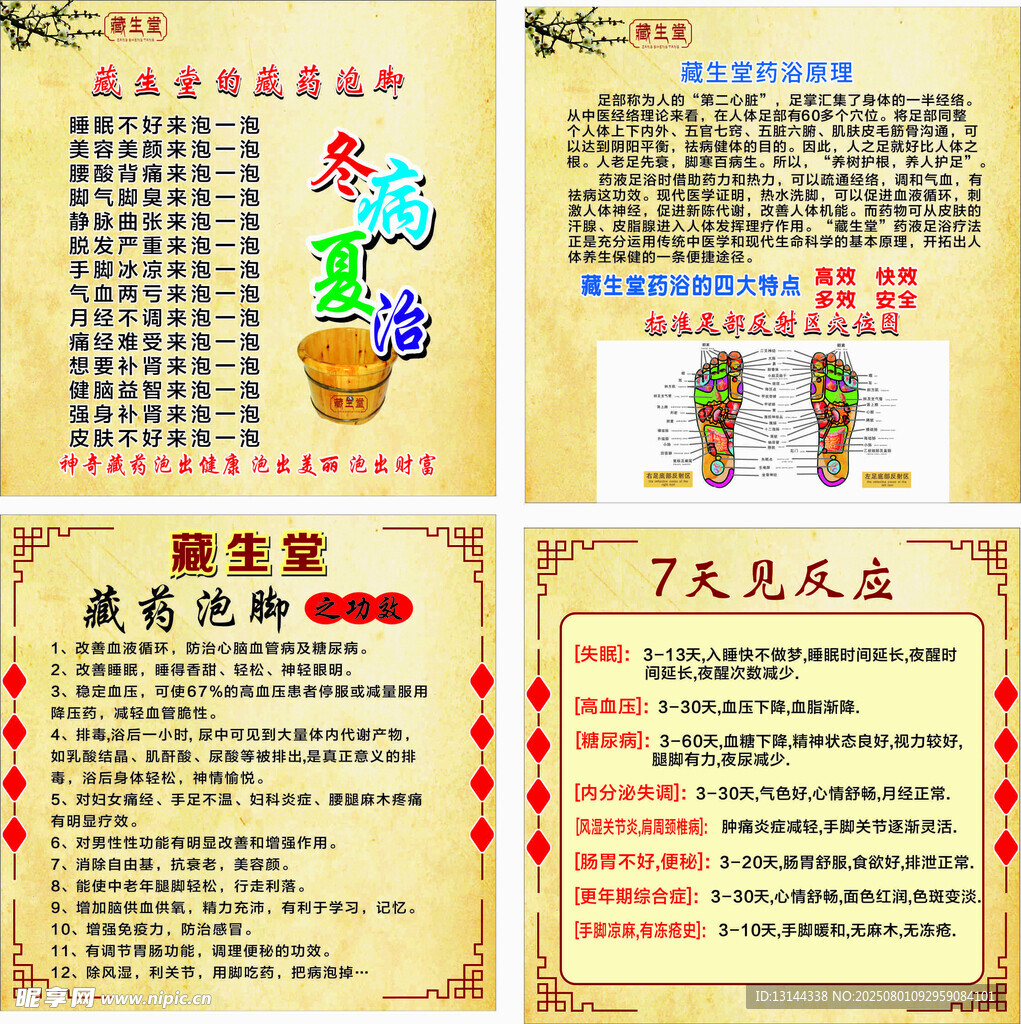 藏生堂
藏生堂的藏药泡脚
睡眠不好来泡一泡
美容美颜来泡一泡
腰酸背痛来泡一泡
脚气脚臭来泡一泡
静脉曲张来泡一泡
脱发严重来泡一泡
手脚冰凉来泡一泡
气血两亏来泡一泡
月经不调来泡一泡
痛经难受来泡一泡
想要补肾来泡一泡
健脑益智来泡一泡
强身补肾来泡一泡
皮肤不好来泡一泡
冬病夏治
藏生堂
神奇藏药泡出健康 泡出美丽 泡出财富
藏生堂
藏生堂药浴原理
足部称为人的“第二心脏”，足掌汇集了身体的一半经络。
从中医经络理论来看，在人体足部有60多个穴位。将足部同整
个人体上下内外、五官七窍、五脏六腑、肌肤皮毛筋骨沟通，可
以达到阴阳平衡，祛病健体的目的。因此，人之足就好比人体之
根。人老足先衰，脚寒百病生。所以，“养树护根，养人护足”。
药液足浴时借助药力和热力，可以疏通经络，调和气血，有
祛病这功效。现代医学证明，热水洗脚，可以促进血液循环，刺
激人体神经，促进新陈代谢，改善人体机能。而药物可从皮肤的
汗腺、皮脂腺进入人体发挥理疗作用。“藏生堂”药液足浴疗法
正是充分运用传统中医学和现代生命科学的基本原理，开拓出人
体养生保健的一条便捷途径。
藏生堂药浴的四大特点
高效 快效
多效 安全
标准足部反射区穴位图
右足底部反射区
左足底部反射区
藏生堂
藏药泡脚 之功效
1、改善血液循环，防治心脑血管病及糖尿病。
2、改善睡眠，睡得香甜、轻松、神轻眼明。
3、稳定血压，可使67%的高血压患者停服或减量服用
降压药，减轻血管脆性。
4、排毒,浴后一小时, 尿中可见到大量体内代谢产物，
如乳酸结晶、肌酐酸、尿酸等被排出,是真正意义的排
毒，浴后身体轻松，神情愉悦。
5、对妇女痛经、手足不温、妇科炎症、腰腿麻木疼痛
有明显疗效。
6、对男性性功能有明显改善和增强作用。
7、消除自由基，抗衰老，美容颜。
8、能使中老年腿脚轻松，行走利落。
9、增加脑供血供氧，精力充沛，有利于学习，记忆。
10、增强免疫力，防治感冒。
11、有调节胃肠功能，调理便秘的功效。
12、除风湿，利关节，用脚吃药，把病泡掉…
7天见反应
[失眠]：3-13天,入睡快不做梦,睡眠时间延长,夜醒时
间延长,夜醒次数减少.
[高血压]：3-30天,血压下降,血脂渐降.
[糖尿病]：3-60天,血糖下降,精神状态良好,视力较好,
腿脚有力,夜尿减少.
[内分泌失调]：3-30天,气色好,心情舒畅,月经正常.
[风湿关节炎,肩周颈椎病]： 肿痛炎症减轻,手脚关节逐渐灵活.
[肠胃不好,便秘]：3-20天,肠胃舒服,食欲好,排泄正常.
[更年期综合症]：3-30天,心情舒畅,面色红润,色斑变淡.
[手脚凉麻,有冻疮史]：3-10天,手脚暖和,无麻木,无冻疮.
昵享网 www.nipic.cn
ID:13144338 NO:20250801092959084101